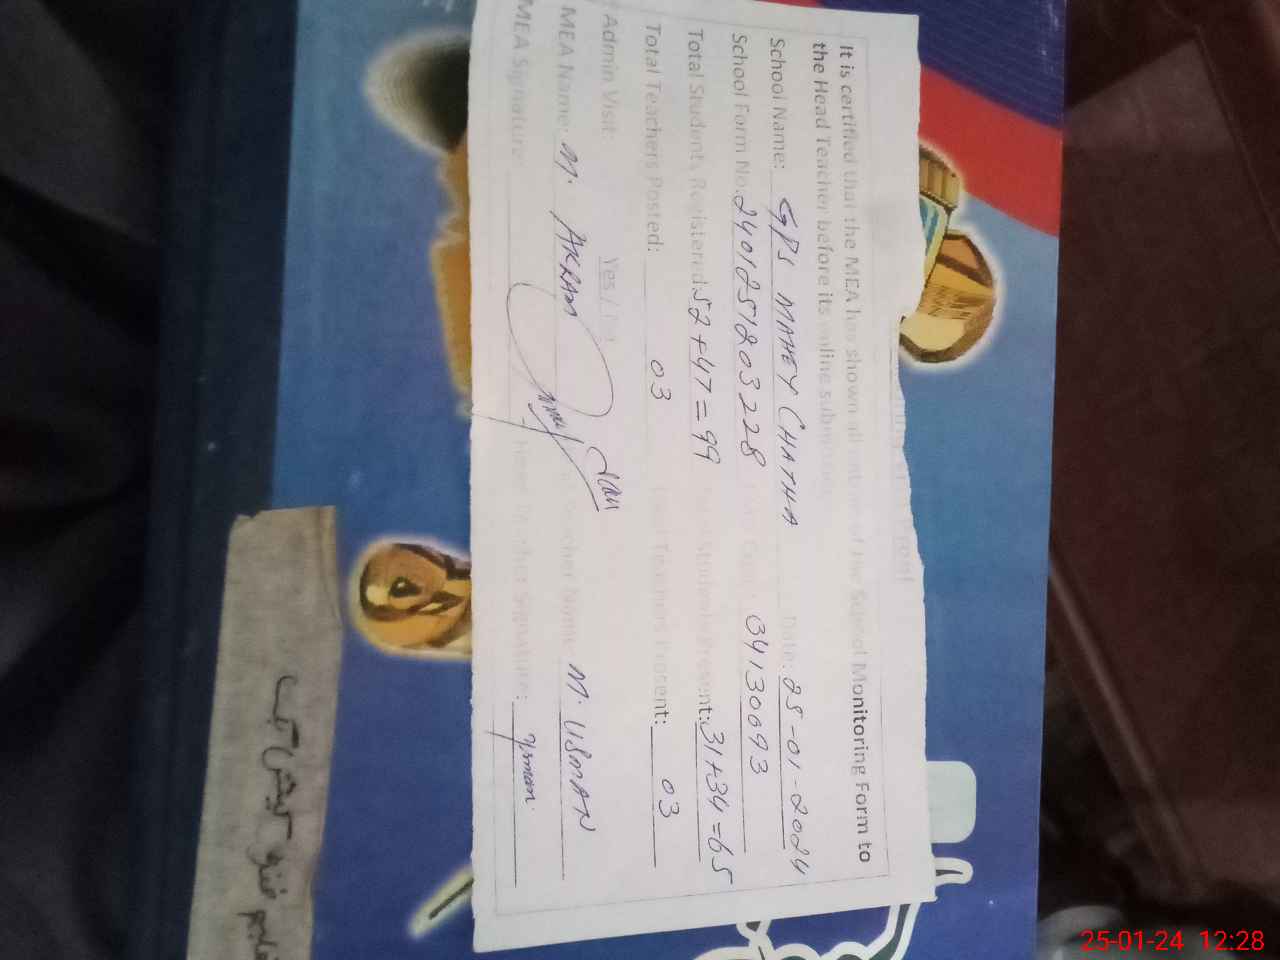 It is certified that the MEA has shown all entries of the School Monitoring Form to
the Head Teacher before its online submission.
School Name: GPS MAHEY CHATHA Date: 25-01-2024
School Form No. 2401251203228 34130093
Total Students Registered: 52+47=99 Students Present: 31+34=65
Total Teachers Posted: 03 Total Teachers Present: 03
Admin Visit: Yes / No
MEA Name: M. AKRAM Head Teacher Name: M. USMAN
MEA Signature: Head Teacher Signature: Usman
25-01-24 12:28